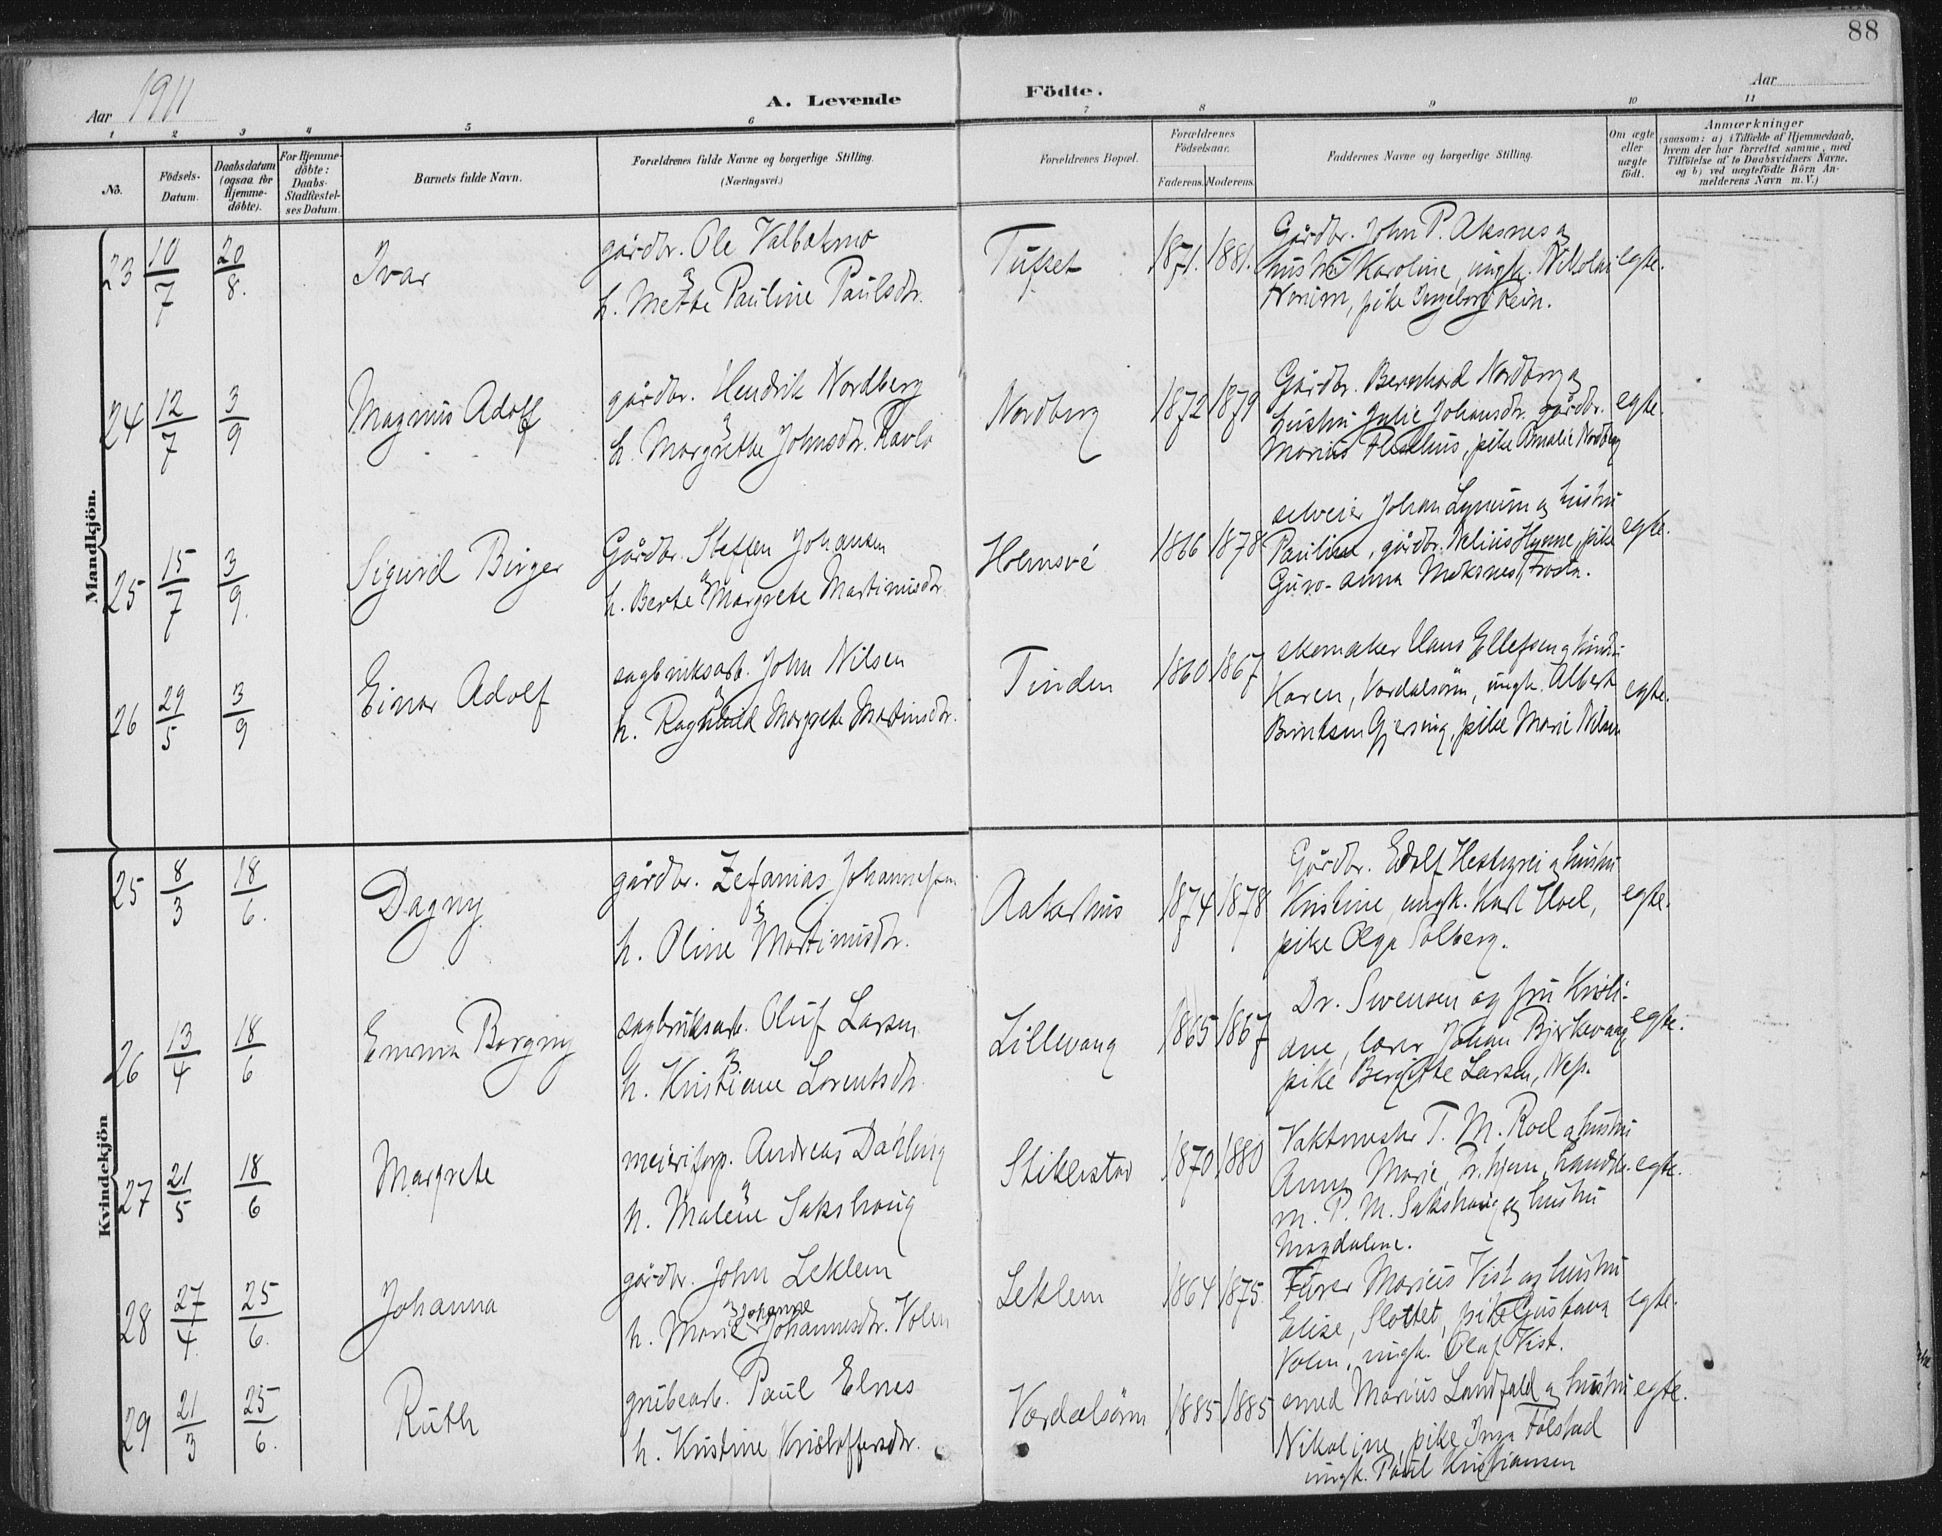 88
Aar 1911
A. Levende
Födte.
Aar
1 2 3 4 5 6 7 8 9 10 11
No.
Födsels-
Datum.
Daabsdatum
(ogsaa for
Hjemme-
döbte).
For Hjemme-
döbte:
Daabs-
Stadfæstel-
ses Datum.
Barnets fulde Navn.
Forældrenes fulde Navne og borgerlige Stilling.
(Næringsvei.)
Forældrenes Bopæl.
Forældrenes
Födselsaar.
Faderens. Moderens.
Faddernes Navne og borgerlige Stilling.
Om ægte
eller
uægte
födt.
Anmærkninger
(saasom: a) i Tilfælde af Hjemmedaab,
hvem der har forrettet samme, med
Tilföielse af to Daabsvidners Navne.
og b) ved uægtefödte Börn An-
melderens Navn m. V.)
Mandkjön.
23 10/7 20/8. Ivar
gårdbr. Ole Valbekmo
h. Mette Pauline Paulsdr.
Tufset 1871. 1881.
Gårdbr. John P. Aksnes og
hustru Karoline, ungk. Nikolai
pike Ingeborg Rein.
egte.
24 12/7 3/9 Magnus Adolf
gårdbr. Hendrik Nordberg
h. Margrethe Johnsdr. Kavlo
Nordberg 1872 1879
Gårdbr. Bernhard Nordberg og
hustru Julie Johansdr. gårdbr.
Marius pike Amalie Nordberg
egte.
25 15/7 3/9. Sigurd Birger
Gårdbr. Steffen Johansen
h. Berte Margrete Martinusdr.
Holmsvé 1866 1878
selveier Johan Lynum og hustru
Pauline, gårdbr. Nelius Hynne, pike
Guro-anna
egte.
26 29/5 3/9 Einar Adolf
sagbruksarb. John Nilsen
h. Ragnhild Margrete Martinsdr.
Tinden 1860 1867
skomaker Hans Ellefsen og hustru
Karen, Værdalsören, ungk. Albert
Berntsen Gjersing, pike Marie Nilsen
egte.
Kvindekjön
25 8/3 18/6. Dagny
gårdbr. Zefanias Johannesen
h. Oline Martinusdr.
Aakerhus 1874 1878
Gårdbr. Edolf og hustru
Kristine, ungk. Karl Hoel,
pike Olga Solberg.
egte.
26 13/4 18/6 Emma Borgny
sagbruksarb. Oluf Larsen
h. Kristiane Lorentsdr.
Lillevang 1865 1867
Dr. Svensen og fru Kristi-
ane, lærer Johan Bjerkevang
pike Bergitte Larsen, Ness.
egte.
27 21/5 18/6 Margrete
meieriforp. Andreas Dahling
h. Malene Sakshaug
Stiklestad 1870 1880
Vaktmester T. M. Roel og hustru
Anna Marie, handels-
m. P. M. Sakshaug og hustru
Magdalene.
egte.
28 27/4. 25/6. Johanna
gårdbr. John Leklem
Johanne
h. Marie Johannesdr. Volen
Leklem 1864 1875
Furer Marius Vist og hustru
Elise, Slottet, pike Gustava
Volen, ungk. Olaf Vist.
egte.
29 21/3 25/6. Ruth
grubearb. Paul Elnes
h. Kristine Kristoffersdr.
Værdalsören 1885 1885
smed Marius Landfald og hustru
Nikoline, pike Inga Tolstad
ungk. Paul Kristiansen
egte.